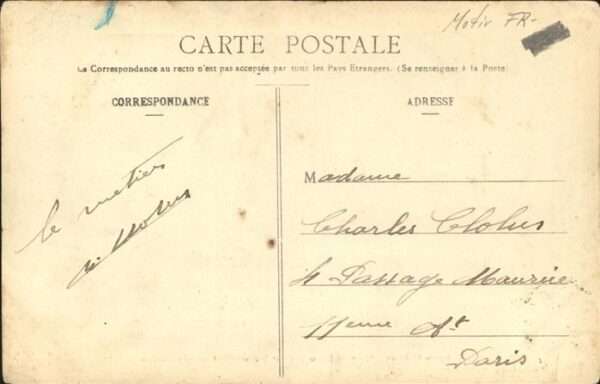 Motiv FR-
CARTE POSTALE
La Correspondance au recto n'est pas acceptée par tous les Pays Etrangers. (Se renseigner à la Poste)
CORRESPONDANCE
le metier
ADRESSE
Madame
Charles Clolus
4 Passage Maurice
11eme Ar
Paris